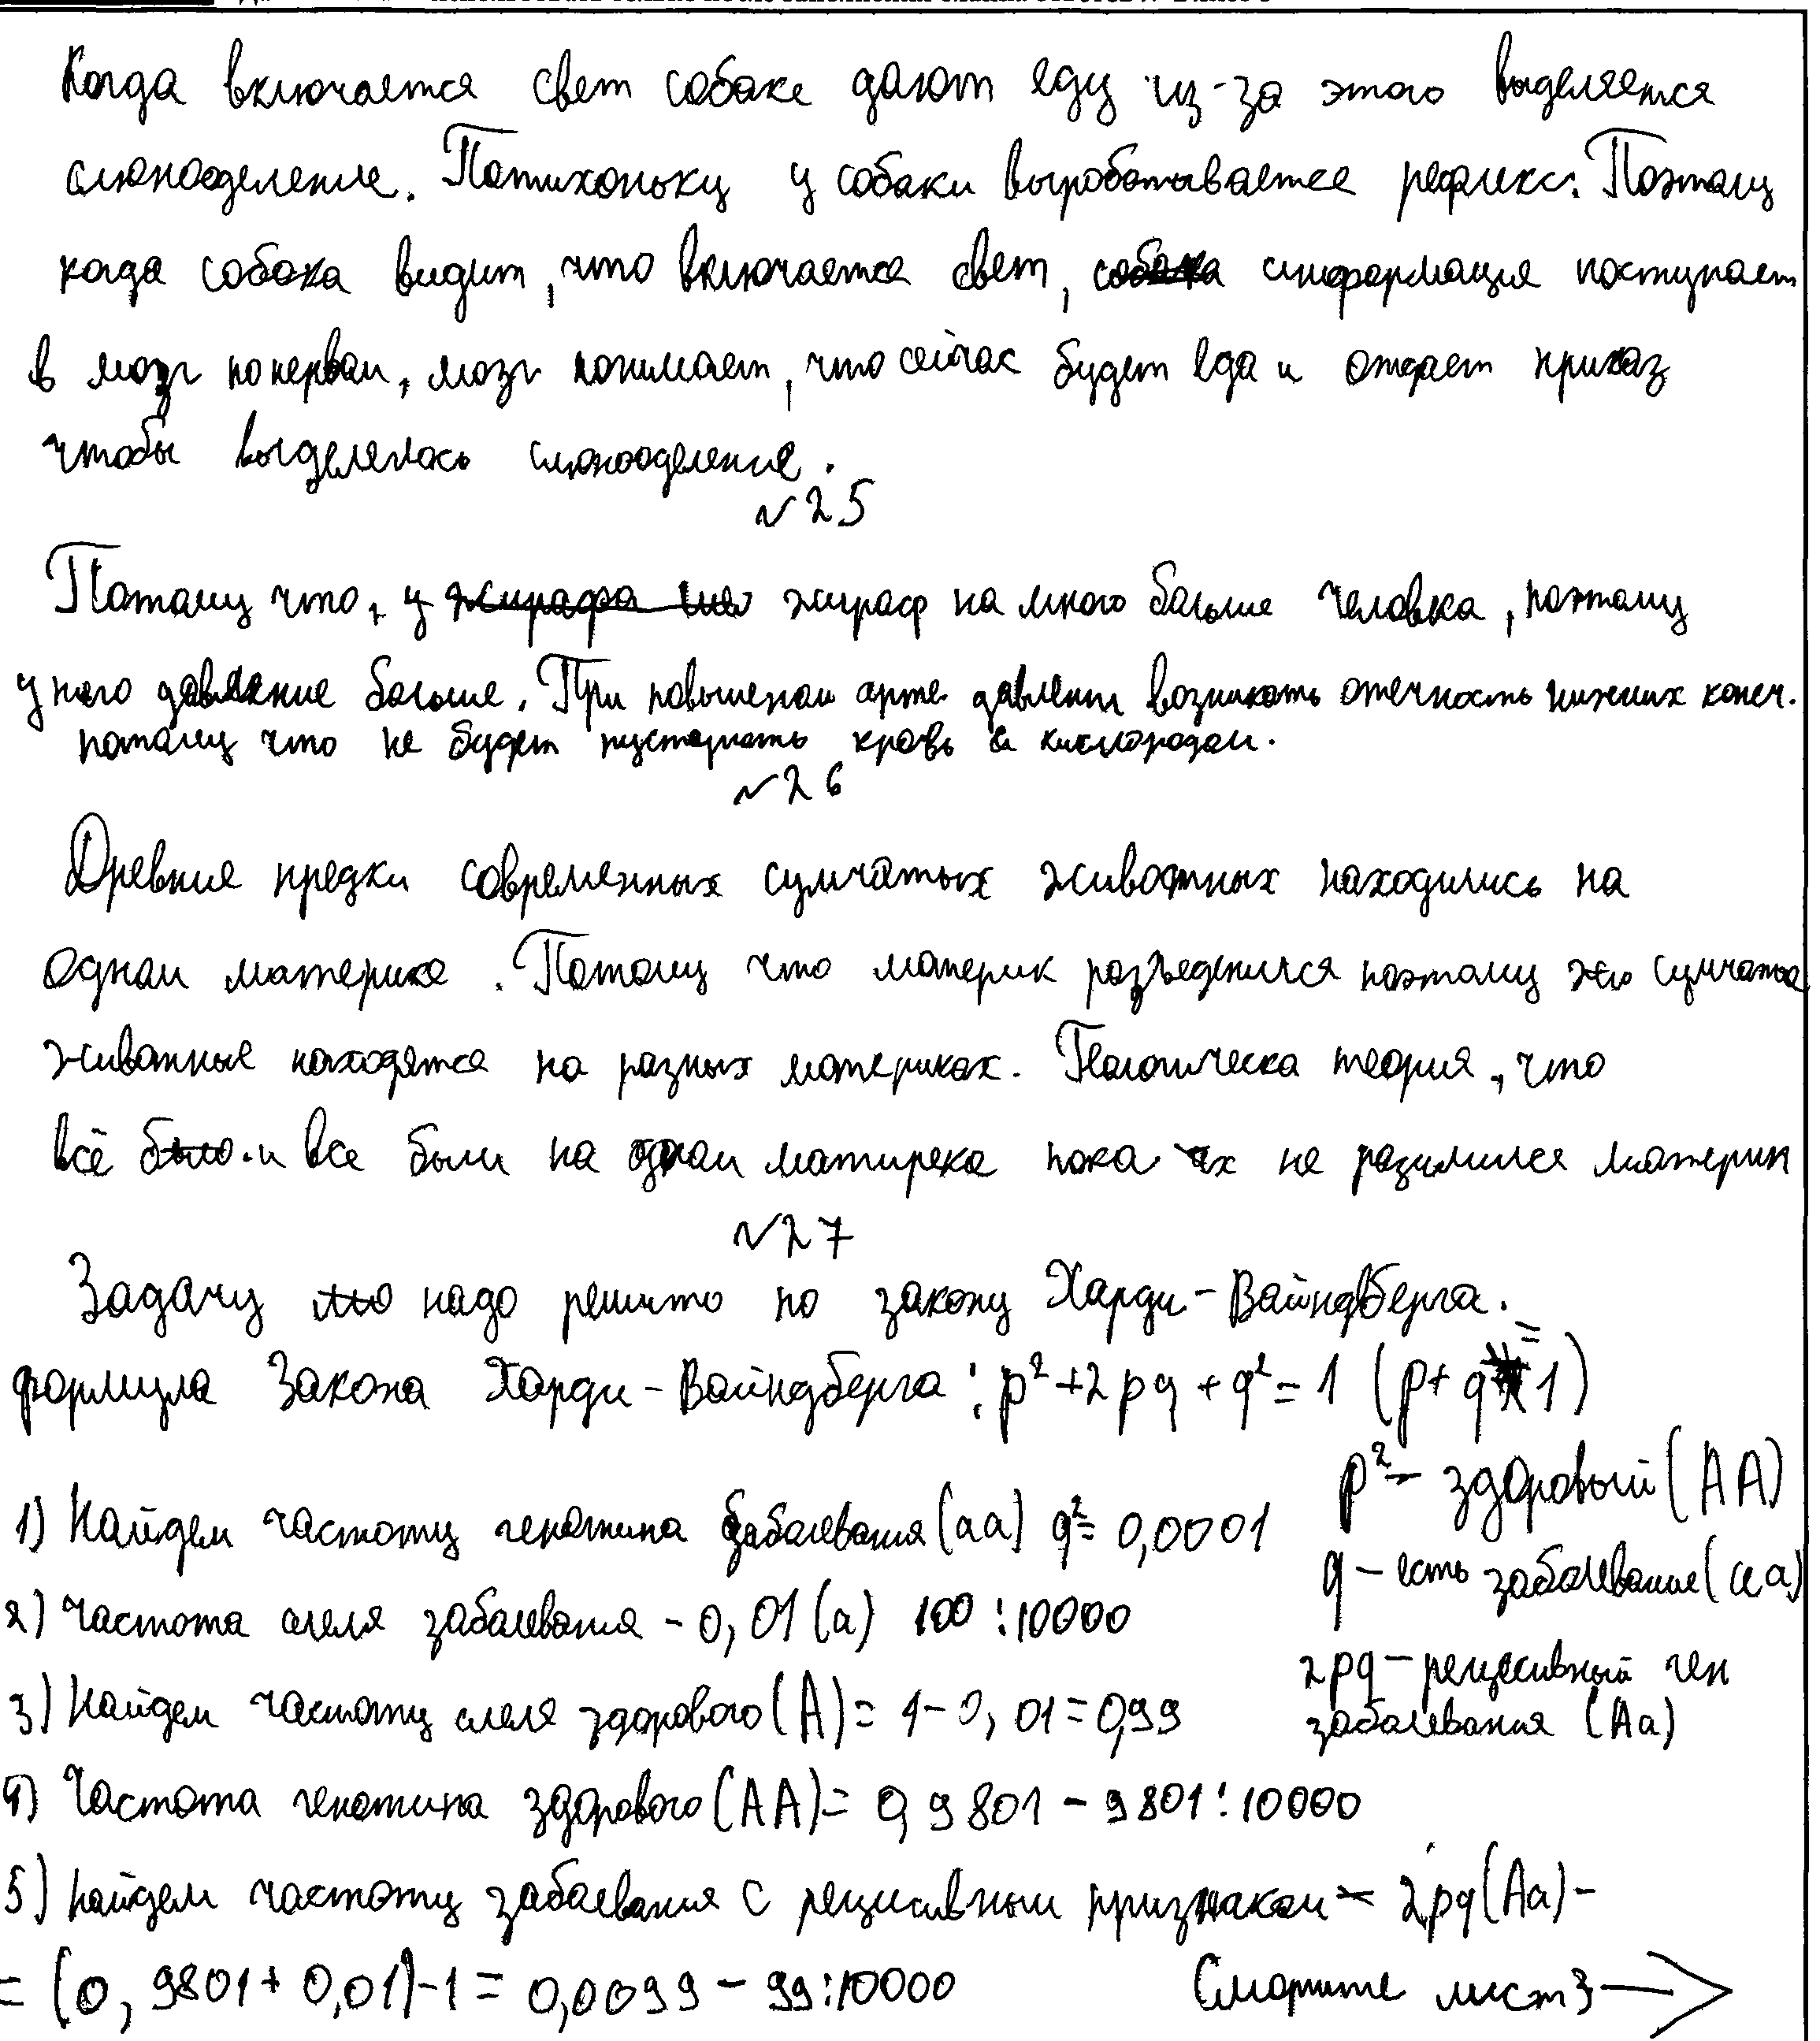 Когда включается свет собаке дают еду из-за этого выделяется
слюноделение. Потихоньку у собаки выробатывается рефлекс. Поэтому
когда собака видит, что включается свет, собака информация поступает
в мозг по нервам, мозг понимает, что сейчас будет еда и отдает приказ
чтобы выделялось слюноделение.
№25
Потому что, у жирафа жираф на много больше человка, поэтому
у него давление больше. При повышеном арте. давлени возникать отечность нижних конеч.
потому что не будет кровь кислородом.
№26
Древние предки современных сумчатых животных находились на
одном материке. Потому что материк разъеденился поэтому сумчатые
живатные находятся на разных материках. теория, что
всё было и все были на одном матиреке пока их не материк
№27
Задачу надо решить по закону Харди-Вайндберга.
формула Закона Харди-Вайндберга: p²+2pq+q²=1 (p+q=1)
p² - здоровый (AA)
1) Найдем частоту генотипа забалевания (aa) q²= 0,0001
q - есть забалевание (aa)
2) Частота алеля забалевания - 0,01 (a) 100:10000
2pq - рецессивный ген
забалевания (Aa)
3) Найдем частоту алеля здорового (A) = 1-0,01=0,99
4) Частота генотипа здорового (AA)= 0,9801 - 9801:10000
5) Найдем частоту забалевания с рецисивным признаком - 2pq (Aa) -
= (0,9801+0,01)-1 = 0,0099 - 99:10000
Смотрите лист 3 →